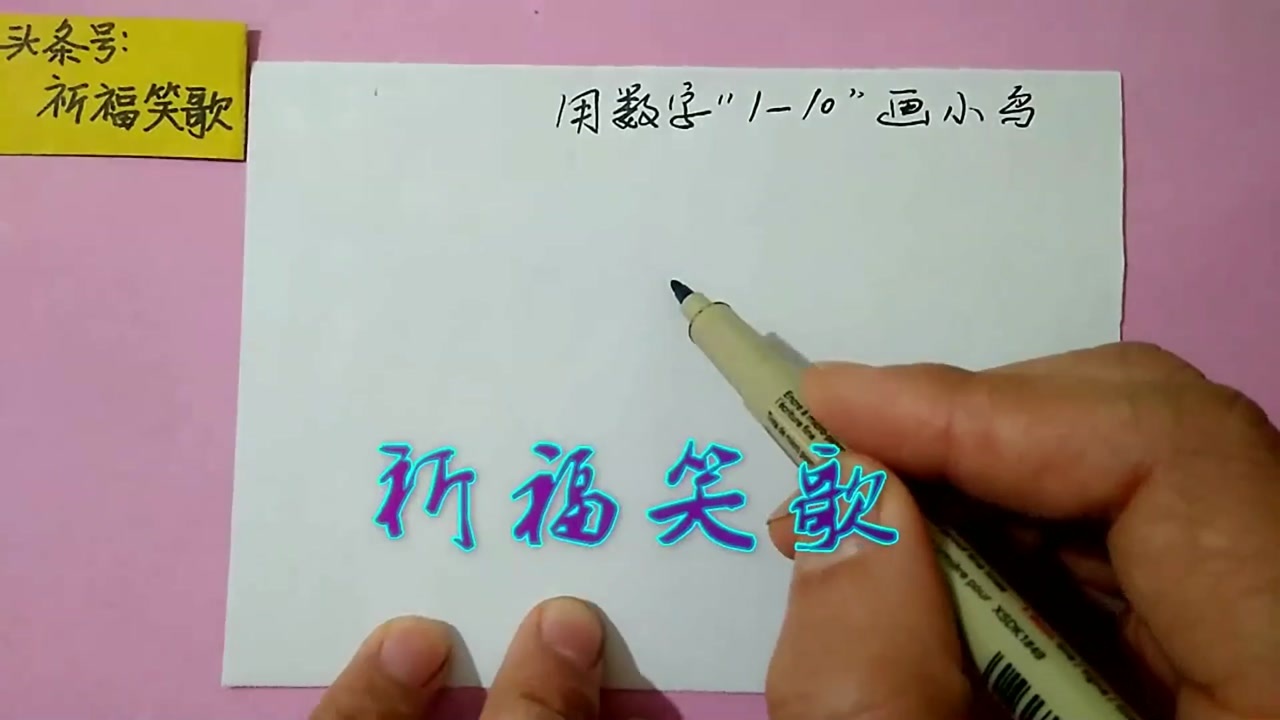 头条号:
祈福笑歌
用数字“1-10”画小鸟
祈福笑歌
XSDK1#49